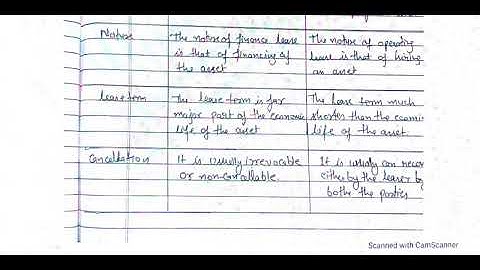 Nature
The nature of finance lease
is that of financing of
the asset
The nature of operating
lease is that of hiring
an asset
Lease term
The lease term is for
major part of the economic
life of the asset
The lease term much
shorter than the
life of the asset.
Cancellation
It is usually irrevocable
or non-cancallable.
It is usually can
either by the leaser
bothe the parties
Scanned with CamScanner